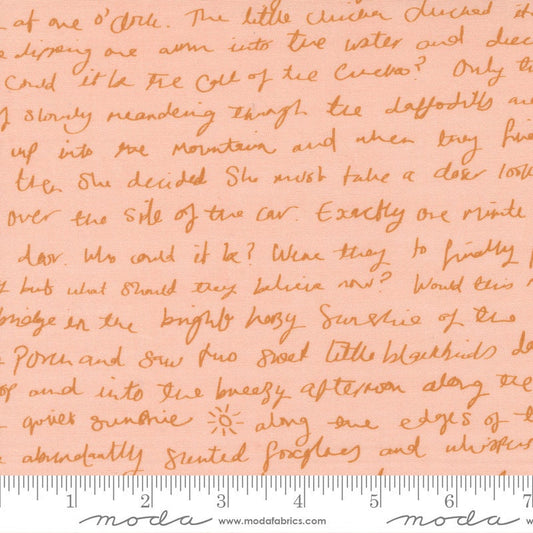 at one o'clock. The little chicken clucked
dipping one arm into the water and
Could it be the Call of the Cuckoo? Only
slowly meandering through the daffodils and
up into the mountain and when they
then She decided She must take a closer look
over the side of the car. Exactly one minute
door. Who could it be? Were they to finally
but what should they believe now? Would this
bridge in the bright hazy Sunshine of the
Porch and saw two sweet little blackbirds
and into the breezy afternoon along the
quiet sunshine along the edges of
abundantly scented foxgloves and whispers
1 2 3 4 5 6 7
moda www.modafabrics.com moda